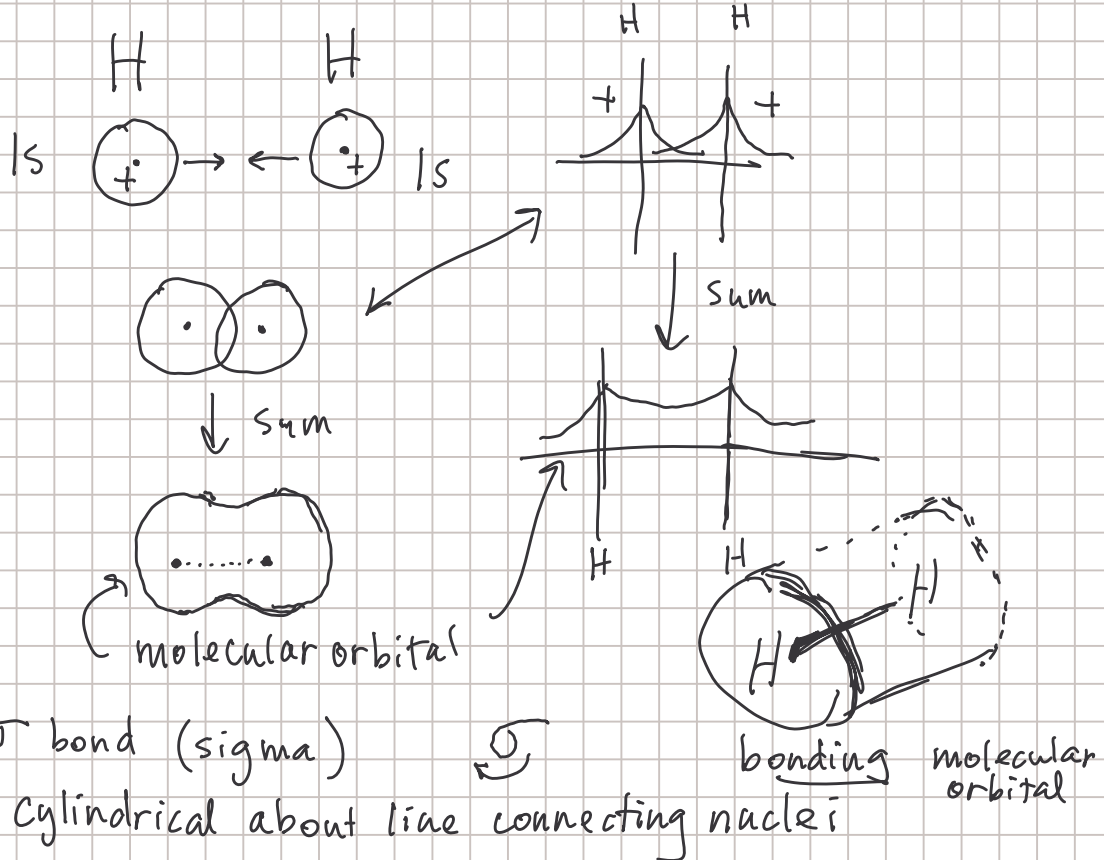 H H
H H
+ +
1s + + 1s
sum
sum
H H
H
H
molecular orbital
σ bond (sigma) σ
bonding molecular
orbital
Cylindrical about line connecting nuclei